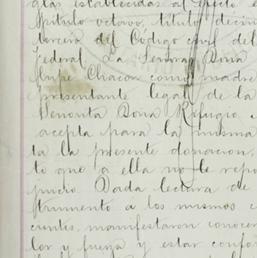 glas establecidas al efecto e
pitulo octavo, titulo decim
tercero del Codigo civil del
Federal. La Señora Doña
lupe Chacon como madre
presentante legal de la
Señorita Doña Refugio
acepta para la misma
ta la presente donacion,
to que a ella no le repo
Dada lectura de
strumento a los mismos c
manifestaron conocer
lor y fuerza y estar confor